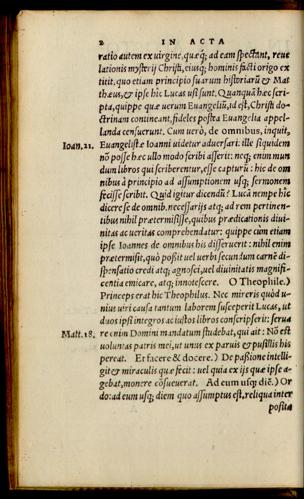 2 IN ACTA
ratio autem ex virgine, quæq; ad eam spectant, reue
lationis mysterij Christi, eiusq; hominis facti origo ex
titit. quo etiam principio suarum historiarū & Mat
thæus, & ipse hic Lucas usi sunt. Quanquā hæc scri
pta, quippe quæ uerum Euangeliū, id est, Christi do
ctrinam contineant, fideles postea Euangelia appel-
landa censuerunt. Cum uerò, de omnibus, inquit,
Ioan. 21. Euangelistæ Ioanni uidetur aduersari. ille siquidem
nō posse hæc ullo modo scribi asserit: neq; enim mun
dum libros qui scriberentur, esse capturū: hic de om
nibus à principio ad assumptionem usq; sermonem
fecisse scribit. Quid igitur dicendū? Lucā nempe hîc
dicere se de omnib. necessarijs atq; ad rem pertinen-
tibus nihil prætermisisse, quibus prædicationis diui-
nitas ac ueritas comprehendatur: quippe cùm etiam
ipse Ioannes de omnibus his disseruerit: nihil enim
prætermisit, quò possit uel uerbi secundum carnē di-
spensatio credi atq; agnosci, uel diuinitatis magnifi-
centia emicare, atq; innotescere. O Theophile.)
Princeps erat hic Theophilus. Nec mireris quòd u-
nius uiri causa tantum laborem susceperit Lucas, ut
duos ipsi integros ac iustos libros conscripserit: serua
Matt. 18. re enim Domini mandatum studebat, qui ait: Nō est
uoluntas patris mei, ut unus ex paruis & pusillis his
pereat. Et facere & docere.) De passione intelli-
git & miraculis quæ fecit: uel quia ex ijs quæ ipse a-
gebat, monere cōsueuerat. Ad eum usq; diē.) Or
do: ad eum usq; diem quo assumptus est, reliqua inter
posita